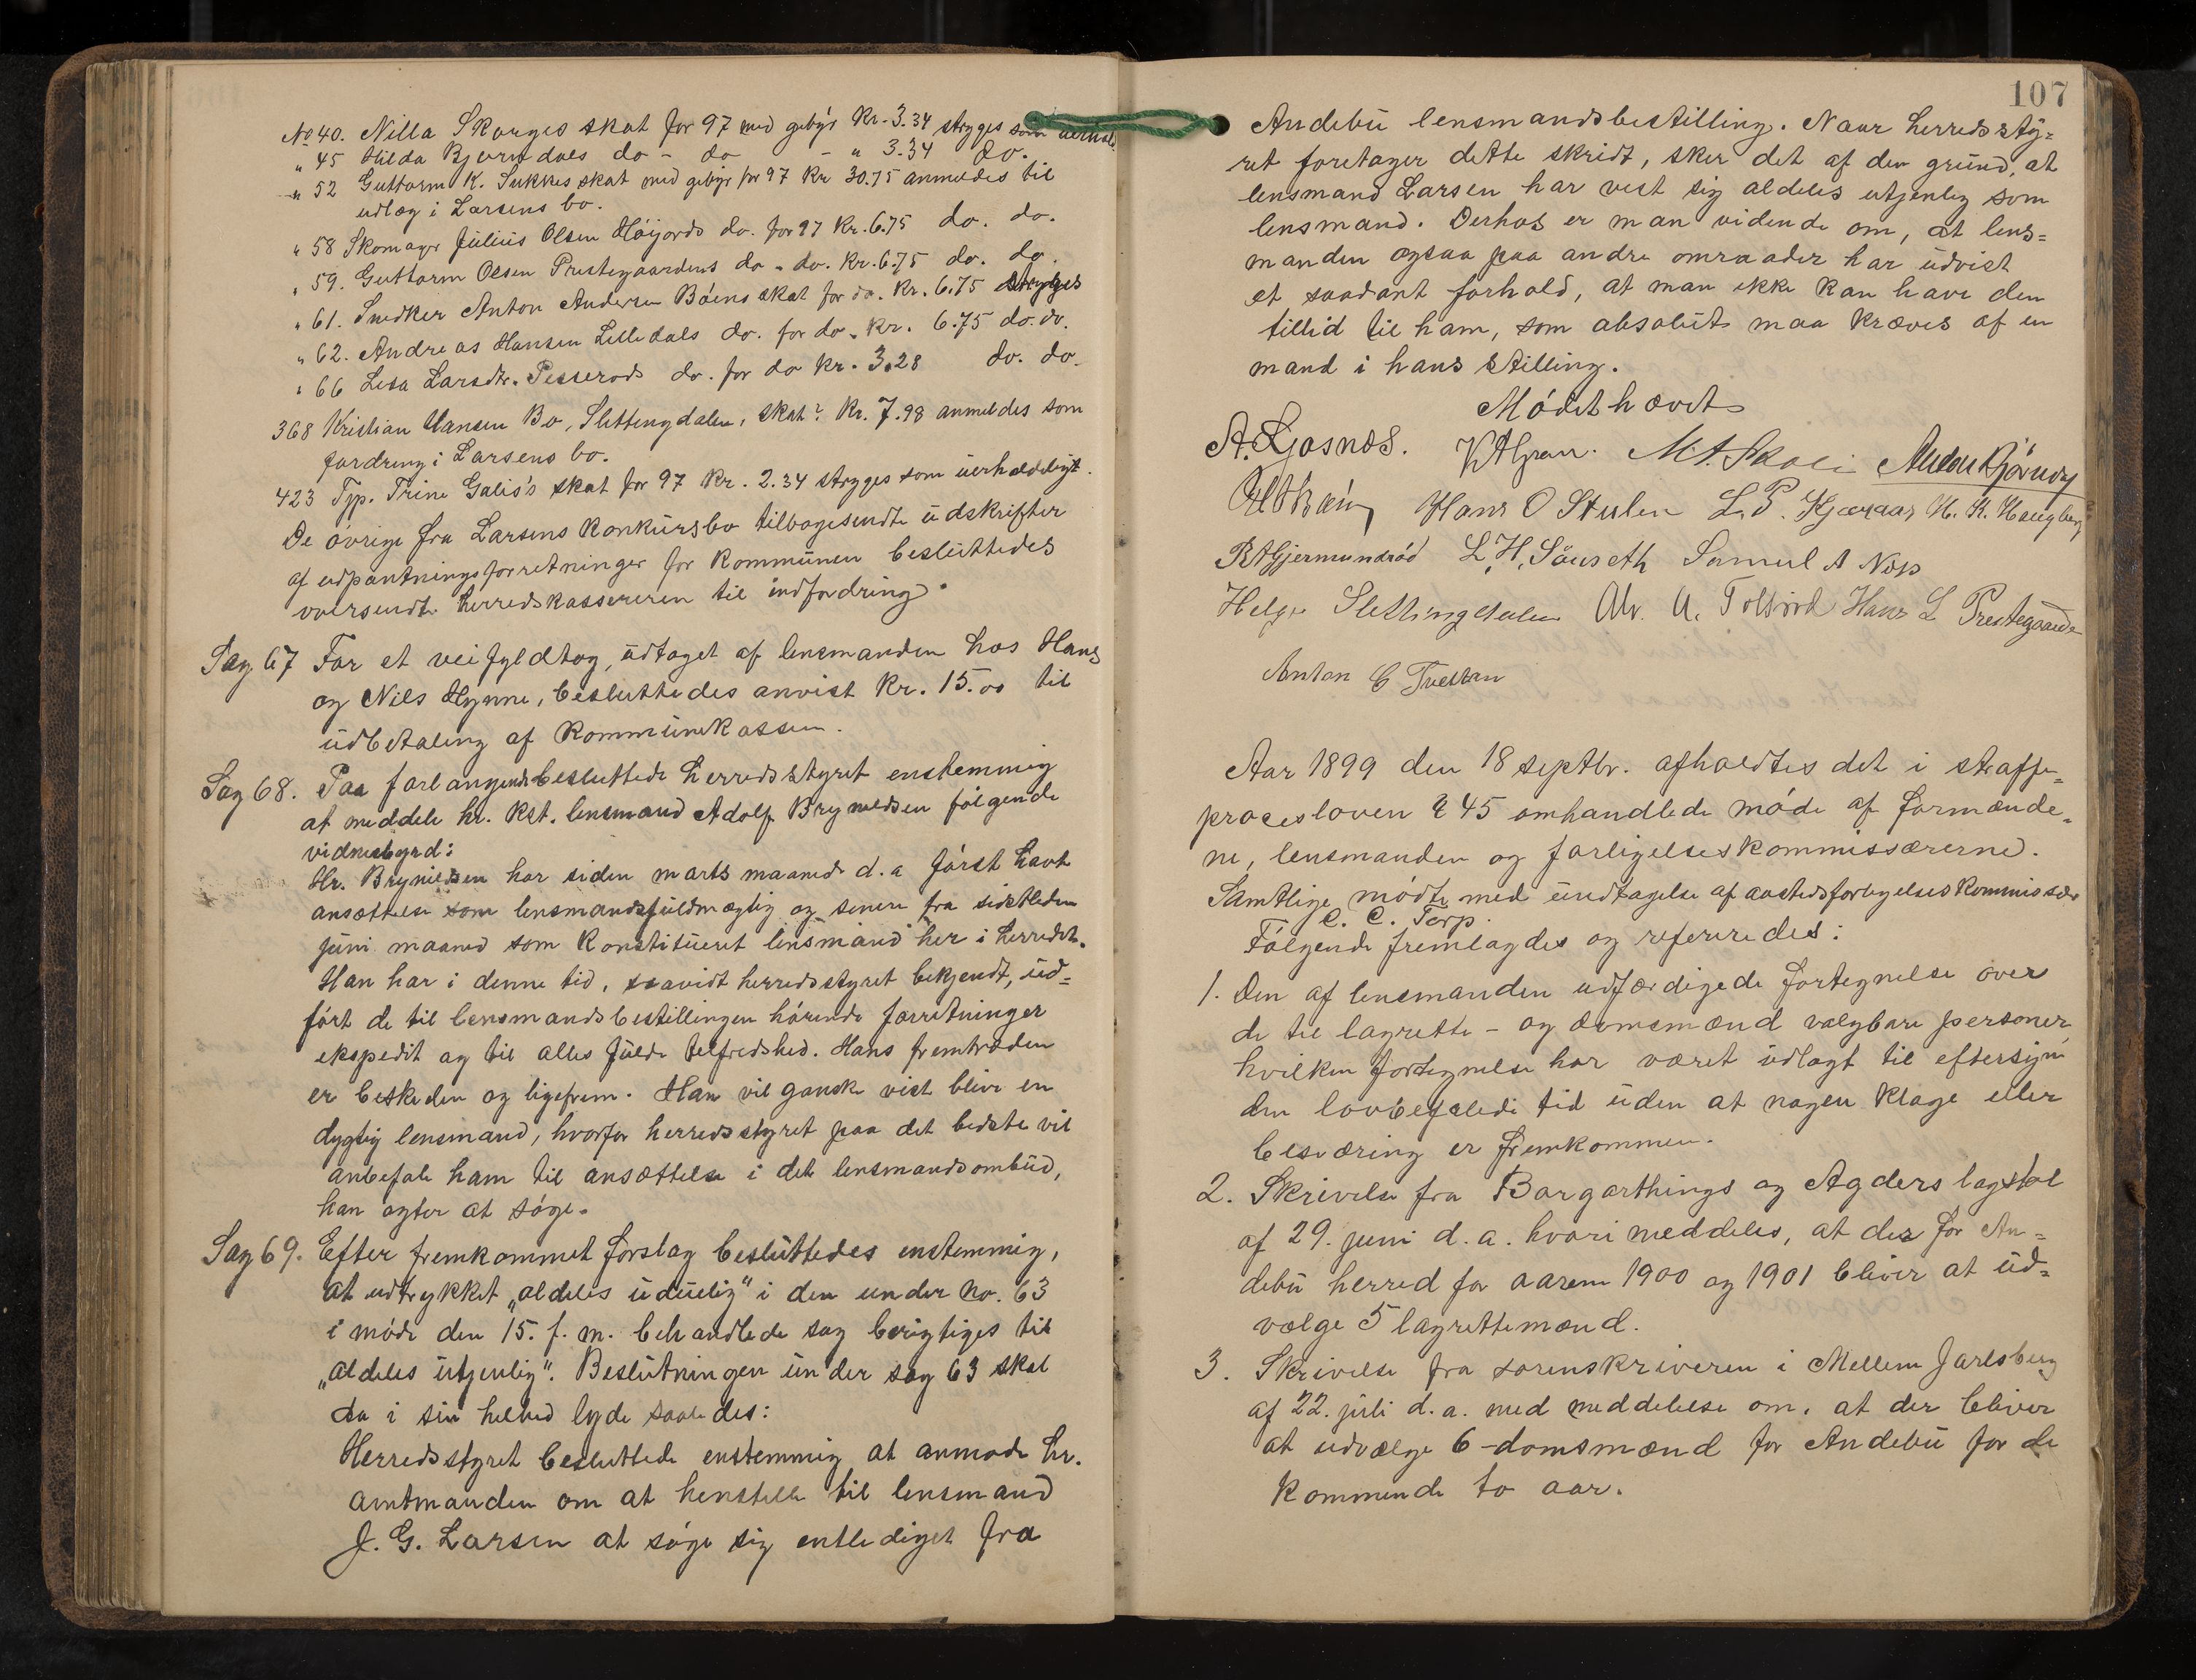 No 40. Nilla Skorges skat for 97 med gebyr Kr. 3.34 stryges som uerhol.
" 45 Hilda Bjørndals do - do - " 3.34 do.
" 52 Guttorm K. Sukkes skat med gebyr for 97 Kr 30.75 anmeldes til
udlæg i Larsens bo.
" 58 Skomager Julius Olsen Høijords do. for 97 Kr. 6.75 do. do.
" 59. Guttorm Olsen Prestegaardens do - do. Kr. 6.75 do. do.
" 61. Snedker Anton Andersen Bøens skat for do. Kr. 6.75 stryges
" 62. Andreas Hansen Lilledals do. for do. Kr. 6.75 do. do.
" 66 Lisa Larsdtr. do. for do Kr. 3.28 do. do.
368 Kristian Hansen Bo, Slettengdalen, skat? Kr. 7.98 anmeldes som
fordring i Larsens bo.
423 Tjp. Trine skat for 97 Kr. 2.34 stryges som uerholdeligt.
De øvrige fra Larsens Konkursbo tilbagesendte udskrifter
af udpantningsforretninger for Kommunen besluttedes
oversendt herredskassereren til indfordring.
Sag 67 For et veifyldtag, udtaget af lensmanden hos Hans
og Nils Hynne, besluttedes anvist Kr. 15.00 til
udbetaling af Kommunekassen.
Sag 68. Paa forlangende besluttede herredsstyret enstemmig
at meddele hr. Kst. lensmand Adolf Brynildsen følgende
vidnesbyrd:
Hr. Brynildsen har siden marts maaned d. a først havt
ansættelse som lensmandsfuldmægtig og senere fra sidstleden
juni maaned som Konstitueret lensmand her i herredet.
Han har i denne tid, saavidt herredsstyret bekjendt, ud=
ført de til lensmandsbestillingen hørende forretninger
ekspedit og til alles fulde tilfredshed. Hans fremtræden
er beskeden og ligefrem. Han vil ganske vist blive en
dygtig lensmand, hvorfor herredsstyret paa det bedste vil
anbefale ham til ansættelse i det lensmandsombud,
han agter at søge.
Sag 69. Efter fremkommet forslag besluttedes enstemmig,
at udtrykket „aldeles uduelig" i den under No. 63
i møde den 15. f. m. behandlede sag berigtiges til
„aldeles utjenlig". Beslutningen under sag 63 skal
da i sin helhed lyde saaledes:
Herredsstyret besluttede enstemmig at anmode hr.
amtmanden om at henstille til lensmand
J. G. Larsen at søge sig entlediget fra
107
Andebu lensmandsbestilling. Naar herredssty=
ret foretager dette skridt, sker det af den grund, at
lensmand Larsen har vist sig aldeles utjenlig som
lensmand. Derhos er man vidende om, at lens=
manden ogsaa paa andre omraader har udvist
et saadant forhold, at man ikke kan have den
tillid til ham, som absolut maa kræves af en
mand i hans stilling.
Mødet hævet
A. Gjosnæs. M. A. Skoli
Hans O Stulen L. P. Kjæraas H. K. Haugberg
R A Gjermundrød L. H. Sønseth Samuel A Nøss
Helge Slettingdalen Alv. A. Tolsrød Hans L Prestegaarden
Anton C Tveitan
Aar 1899 den 18 septbr. afholdtes det i straffe=
procesloven § 45 omhandlede møde af formænde=
ne, lensmanden og forligelseskommissærerne.
Samtlige mødte med undtagelse af aastedsforligelseskommissær
C. C. Torp.
Følgende fremlagdes og refereredes:
1. Den af lensmanden udfærdigede fortegnelse over
de til lagrette- og domsmænd valgbare personer,
hvilken fortegnelse har været udlagt til eftersyn
den lovbefalede tid uden at nogen klage eller
besværing er fremkommen.
2. Skrivelse fra Borgarthings og Agders lagstol
af 29. juni d. a. hvori meddeles, at der for An=
debu herred for aarene 1900 og 1901 bliver at ud=
vælge 5 lagrettemænd.
3. Skrivelse fra sorenskriveren i Mellem Jarlsberg
af 22. juli d. a. med meddelelse om, at der bliver
at udvælge 6 domsmænd for Andebu for de
kommende to aar.